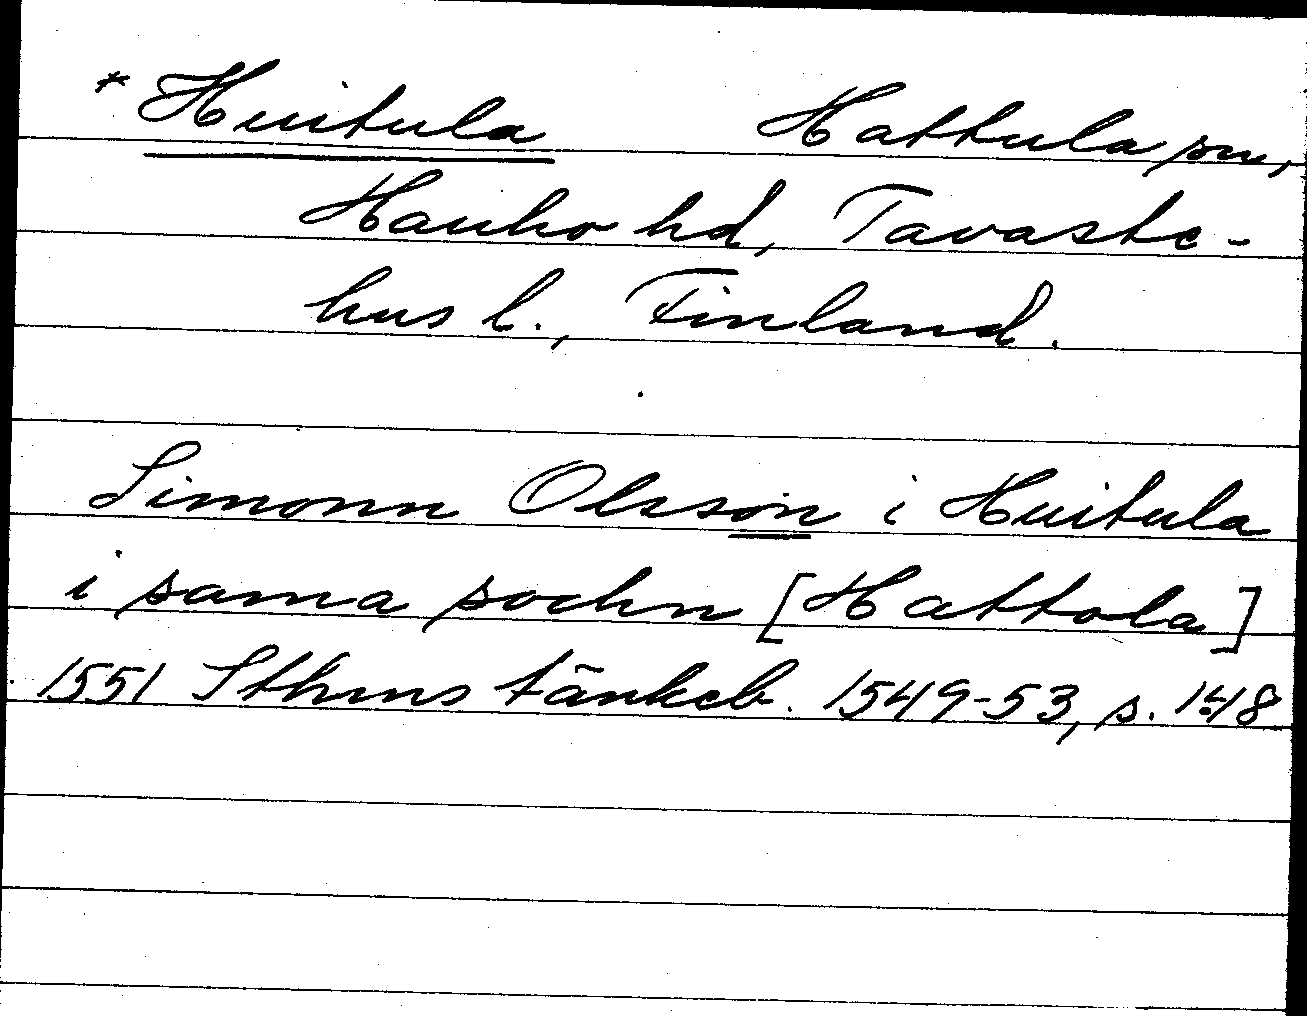 * Huitula Hattula sn,
Hauho hd, Tavaste-
hus l., Finland.
Simonn Olsson i Huitula
i sama sochn [Hattola]
1551 Sthms tänkeb. 1549-53, s. 148